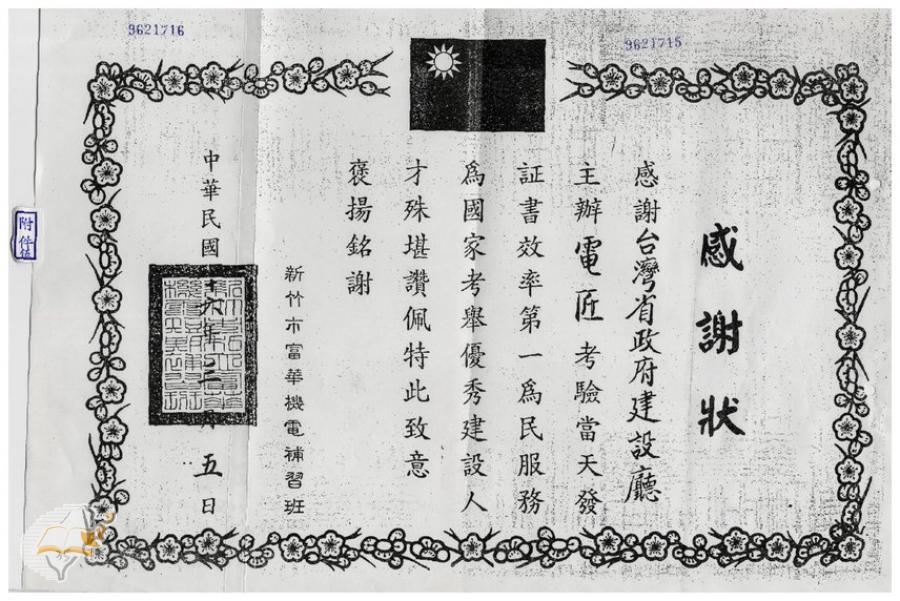 9621716
9621715
感謝狀
感謝台灣省政府建設廳
主辦電匠考驗當天發
証書效率第一為民服務
為國家考舉優秀建設人
才殊堪讚佩特此致意
褒揚銘謝
新竹市富華機電補習班
中華民國
五日
附件伍